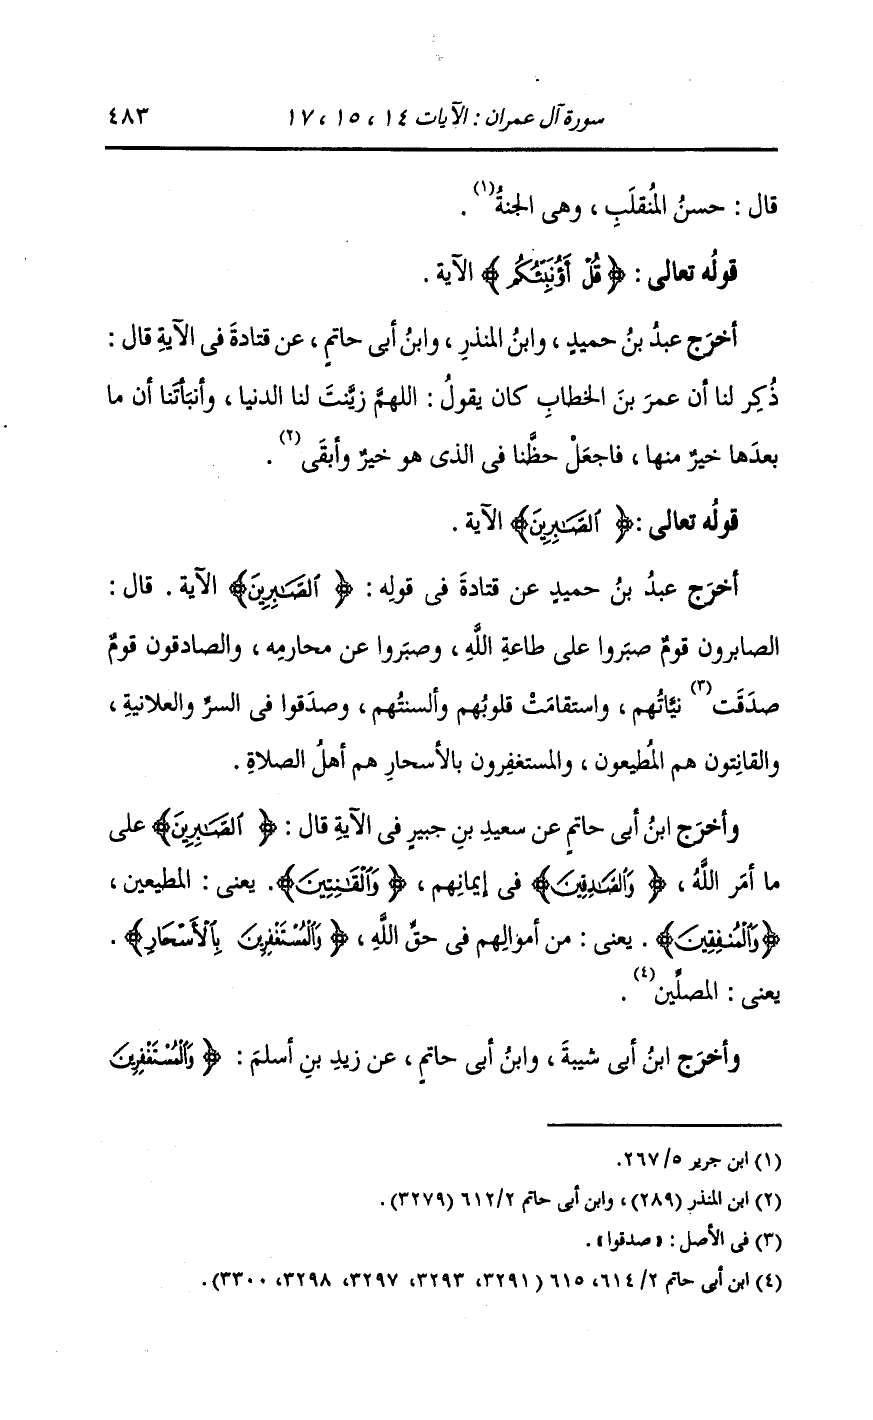 سورة آل عمران : الآيات ١٤ ، ١٥ ، ١٧ ٤٨٣
قال : حسنُ المُنقلَبِ ، وهى الجنةُ(١) .
قولُه تعالى : ﴿ قُلْ أَؤُنَبِّئُكُم ﴾ الآية .
أخرَج عبدُ بنُ حميدٍ ، وابنُ المنذرِ ، وابنُ أبى حاتمٍ ، عن قتادةَ فى الآيةِ قال :
ذُكِر لنا أن عمرَ بنَ الخطابِ كان يقولُ : اللهمَّ زيَّنتَ لنا الدنيا ، وأنبَأتَنا أن ما
بعدَها خيرٌ منها ، فاجعَلْ حظَّنا فى الذى هو خيرٌ وأبقَى(٢) .
قولُه تعالى :﴿ ٱلصَّـٰبِرِينَ﴾ الآية .
أخرَج عبدُ بنُ حميدٍ عن قتادةَ فى قولِه : ﴿ ٱلصَّـٰبِرِينَ﴾ الآية . قال :
الصابرون قومٌ صبَروا على طاعةِ اللَّهِ ، وصبَروا عن محارمِه ، والصادقون قومٌ
صدَقَت(٣) نيَّاتُهم ، واستقامَتْ قلوبُهم وألسنتُهم ، وصدَقوا فى السرِّ والعلانيةِ ،
والقانِتون هم المُطيعون ، والمستغفِرون بالأسحارِ هم أهلُ الصلاةِ .
وأخرَج ابنُ أبى حاتمٍ عن سعيدِ بنِ جبيرٍ فى الآيةِ قال : ﴿ ٱلصَّـٰبِرِينَ﴾ على
ما أمَر اللَّهُ ، ﴿ وَٱلصَّـٰدِقِينَ﴾ فى إيمانِهم ، ﴿ وَٱلْقَـٰنِتِينَ﴾. يعنى : المطيعين ،
﴿وَٱلْمُنـفِقِينَ﴾ . يعنى : من أموالِهم فى حقِّ اللَّهِ ، ﴿ وَٱلْمُسْتَغْفِرِينَ بِٱلْأَسْحَارِ﴾ .
يعنى : المصلِّين(٤) .
وأخرَج ابنُ أبى شيبةَ ، وابنُ أبى حاتمٍ ، عن زيدِ بنِ أسلمَ : ﴿ وَٱلْمُسْتَغْفِرِينَ
(١) ابن جرير ٥/ ٢٦٧.
(٢) ابن المنذر (٢٨٩) ، وابن أبى حاتم ٢/ ٦١٢ (٣٢٧٩) .
(٣) فى الأصل : « صدقوا » .
(٤) ابن أبى حاتم ٢/ ٦١٤، ٦١٥ (٣٢٩١، ٣٢٩٣، ٣٢٩٧، ٣٢٩٨، ٣٣٠٠) .